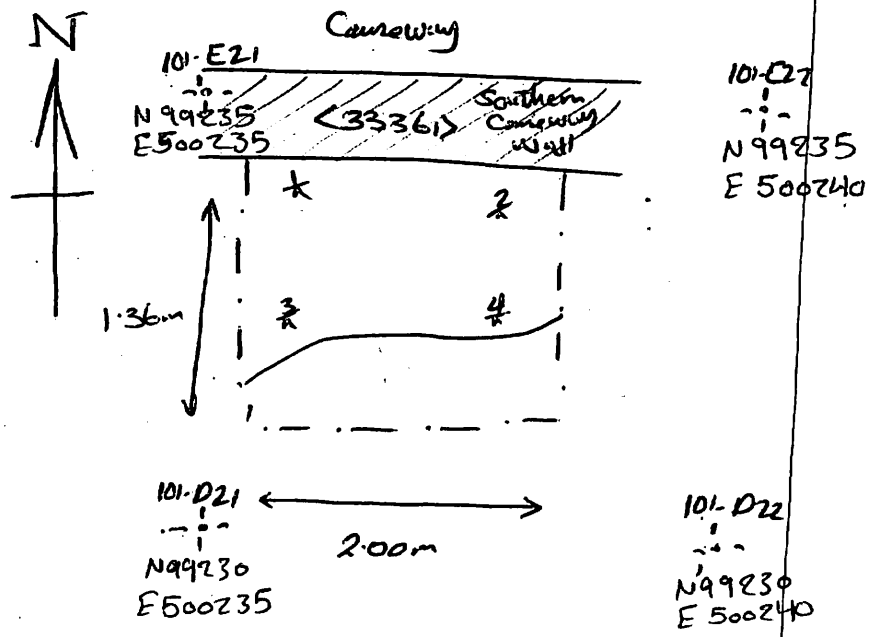 N
Causeway
101-E21
N 99235
E500235
<33361>
Southern
Causeway
Wall
101-E22
N 99235
E 500240
1
2
3
4
1.36m
101-D21
N99230
E500235
2.00m
101-D22
N99230
E 500240